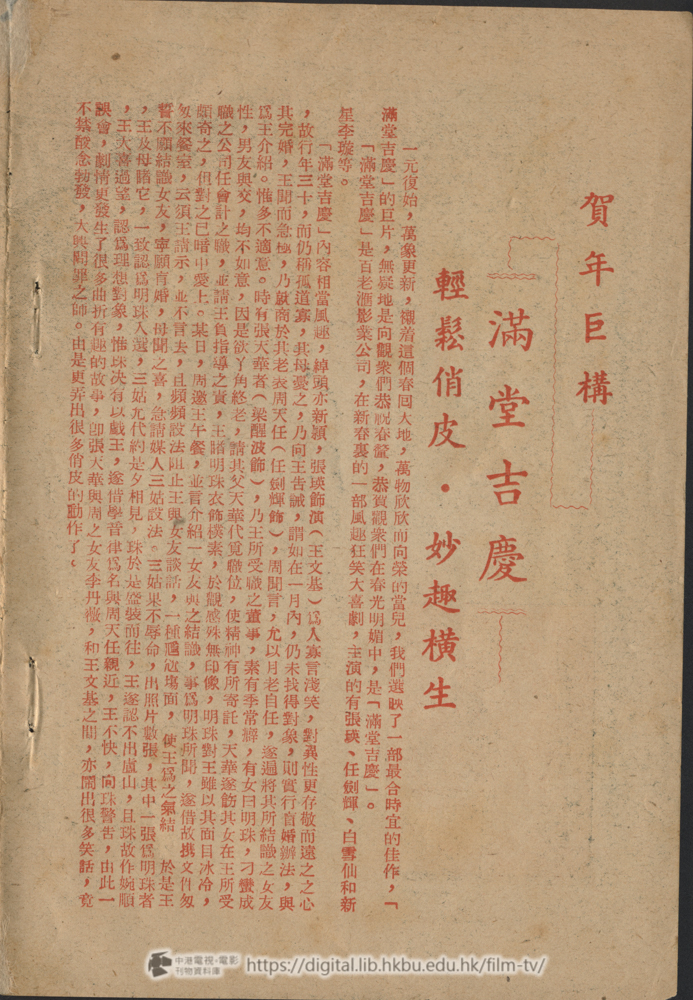 賀年巨構
滿堂吉慶
輕鬆俏皮・妙趣橫生
一元復始，萬象更新，襯着這個春回大地，萬物欣欣而向榮的當兒，我們選映了一部最合時宜的佳作，「
滿堂吉慶」的巨片，無疑地是向觀衆們恭祝春釐，恭賀觀衆們在春光明媚中，是「滿堂吉慶」。
「滿堂吉慶」是百老滙影業公司，在新春裏的一部風趣狂笑大喜劇，主演的有張瑛、任劍輝、白雪仙和新
星李璇等。
「滿堂吉慶」內容相當風趣，綽頭亦新潁，張瑛飾演（王文基）爲人寡言淺笑，對異性更存敬而遠之之心
，故行年三十，而仍稱孤道寡，其母憂之，乃向王告誡，謂如在一月內，仍未找得對象，則實行盲婚辦法，與
其完婚，王聞而急極，乃獻商於其老表周天任（任劍輝飾），周聞言，允以月老自任，遂遍將其所結識之女友
爲王介紹。惟多不適意。時有張天華者（梁醒波飾），乃王所受職之董事，素有季常癖，有女曰明珠，刁蠻成
性，男友與交，均不如意，因是欲丫角終老，請其父天華代覓職位，使精神有所寄託，天華遂飭其女在王所受
職之公司任會計之職，並請王負指導之責，王睹明珠衣飾樸素，於觀感殊無印像，明珠對王雖以其面目冰冷，
頗奇之，但對之已暗中愛上。某日，周邀王午餐，並言介紹一女友與之結識，事爲明珠所聞，遂借故携文件匆
匆來餐室，云須王請示，並不言去，且頻頻設法阻止王與女友談話，一種尷尬場面，使王爲之氣結　於是王
誓不願結識女友，寧願盲婚，母聞之喜，急請媒人三姑設法。三姑果不辱命，出照片數張，其中一張爲明珠者
，王及母睹它，一致認爲明珠入選，三姑允代約是夕相見，珠於是盛裝而往，王遂認不出盧山，且珠故作婉順
，王大喜過望，認爲理想對象，惟珠决有以戲王，遂借學音律爲名與周天任親近，王不快，向珠警告，由此一
誤會，劇情更發生了很多曲折有趣的故事，卽張天華與周之女友李丹薇，和王文基之間，亦鬧出很多笑話，竟
不禁酸念勃發，大興問罪之師。由是更弄出很多俏皮的動作了。
中港電視・電影
刊物資料庫
https://digital.lib.hkbu.edu.hk/film-tv/